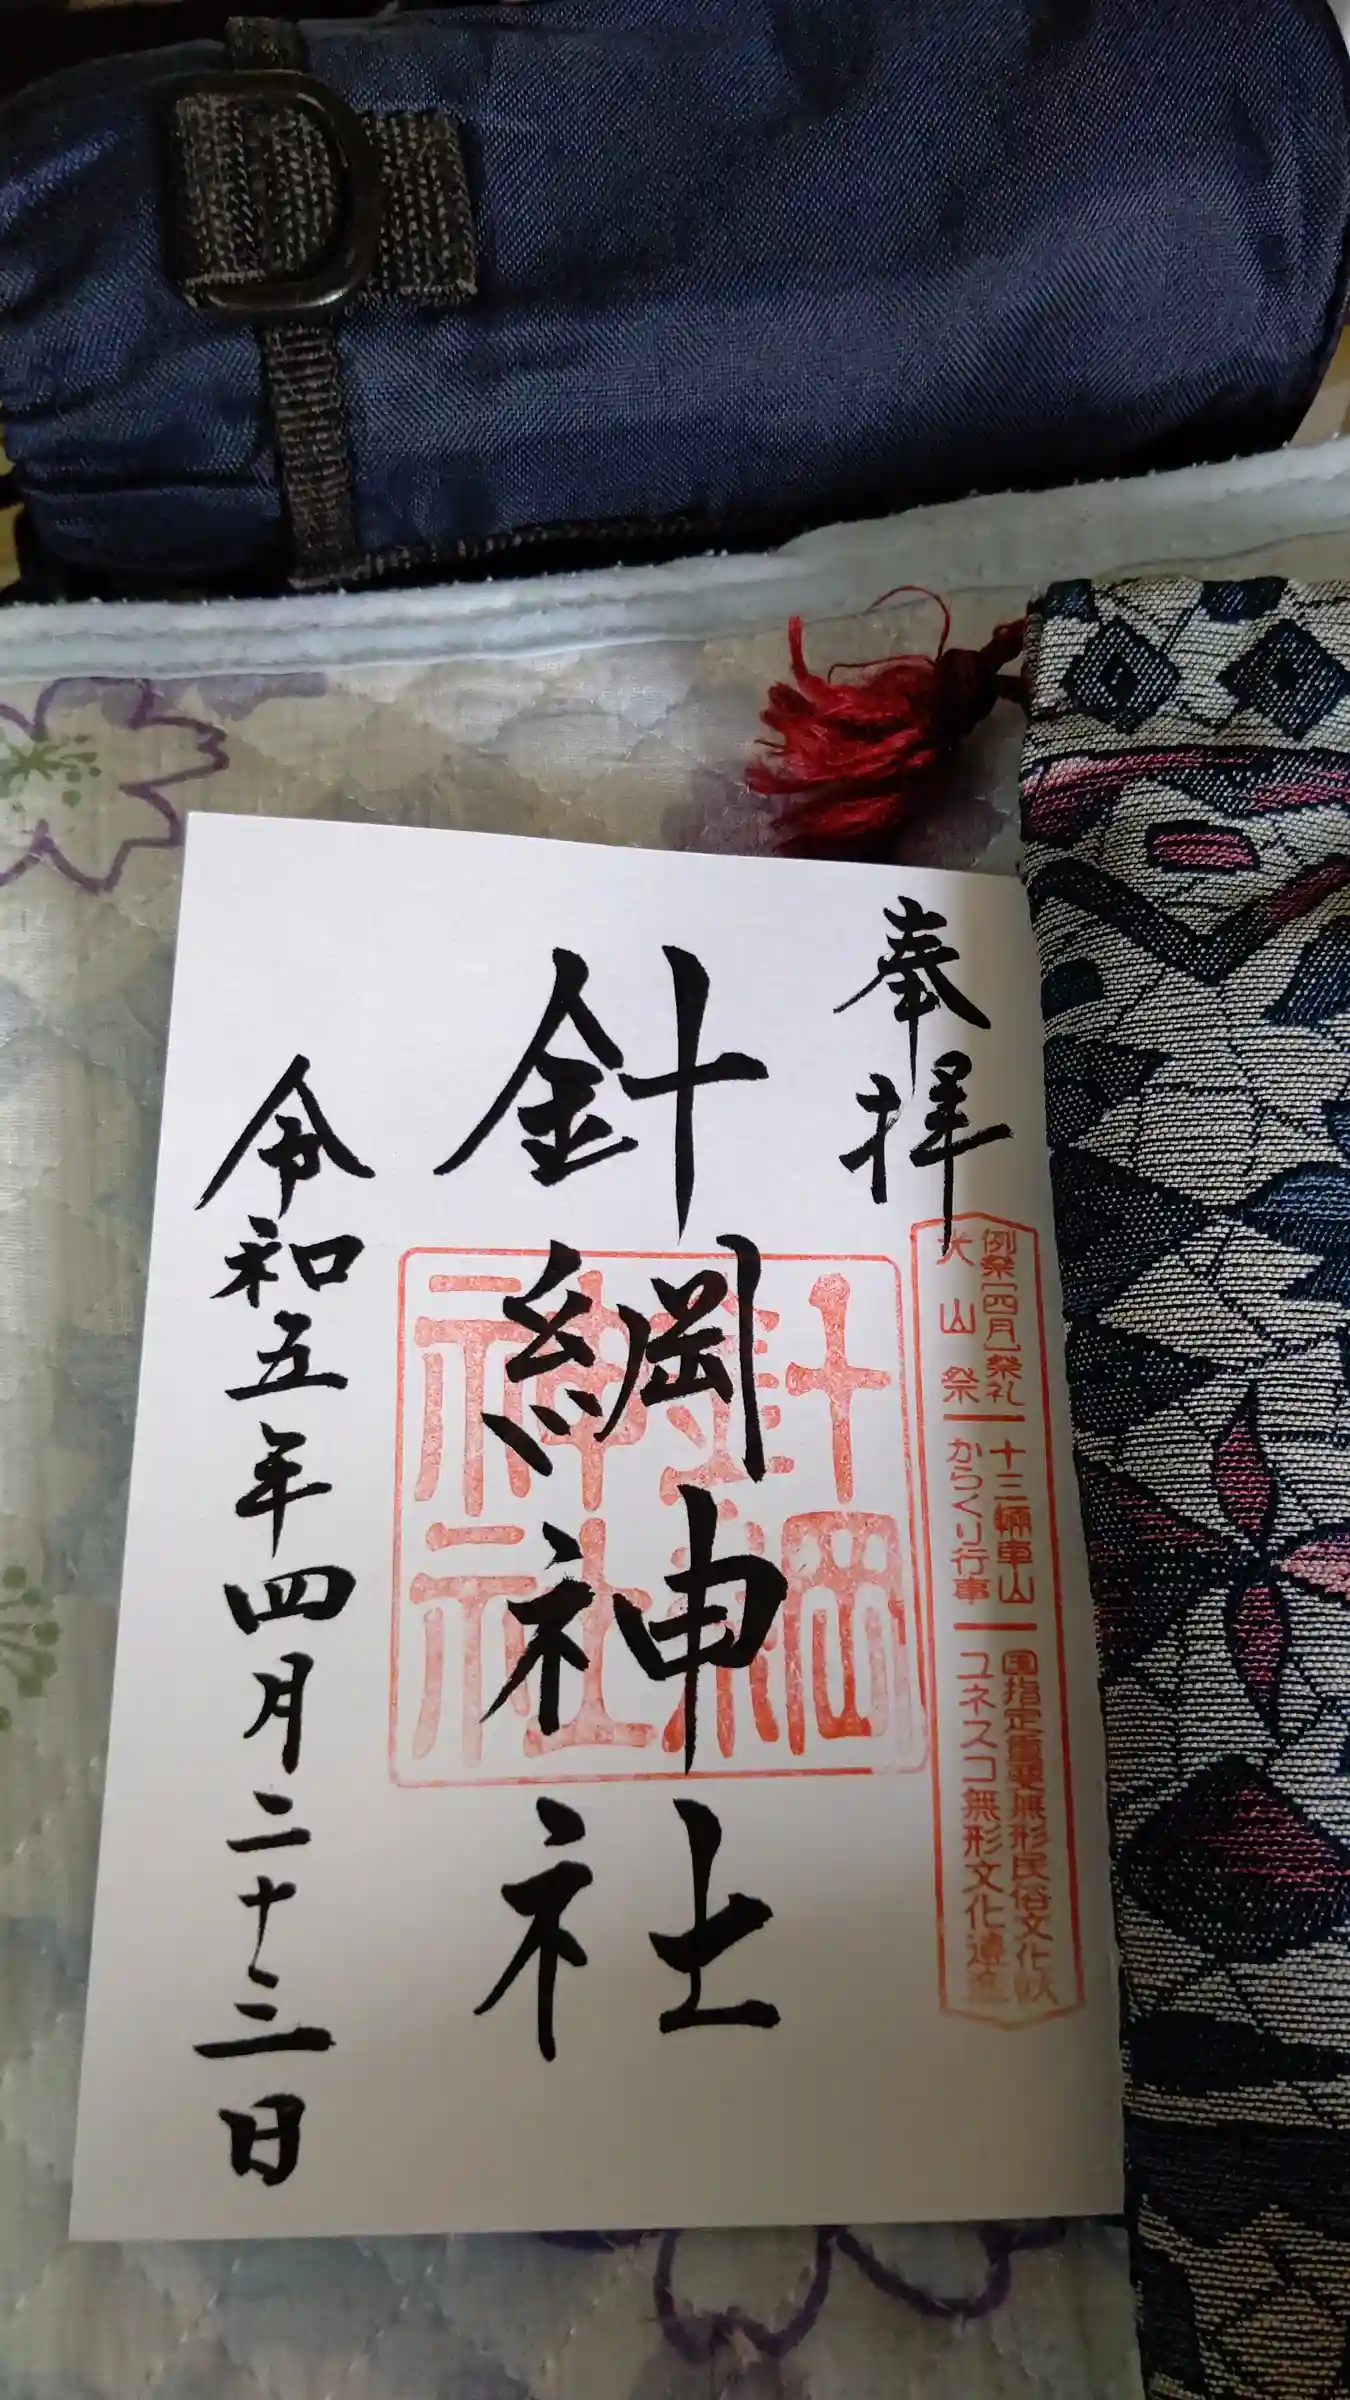 奉拝
例祭[四月]祭礼 十三輌車山 国指定重要無形民俗文化財
犬山祭 からくり行事 ユネスコ無形文化遺産
針綱神社
針綱神社
令和五年四月二十三日